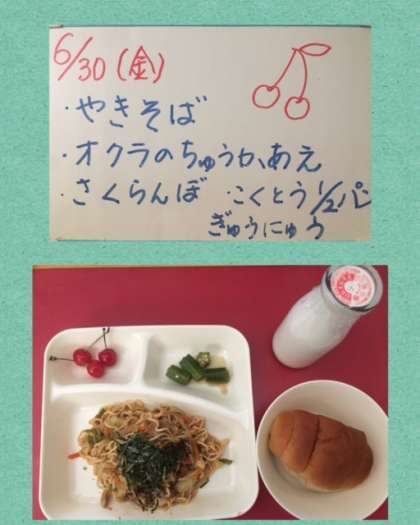 6/30(金)
・やきそば
・オクラのちゅうかあえ
・さくらんぼ ・こくとう1/2パン
ぎゅうにゅう